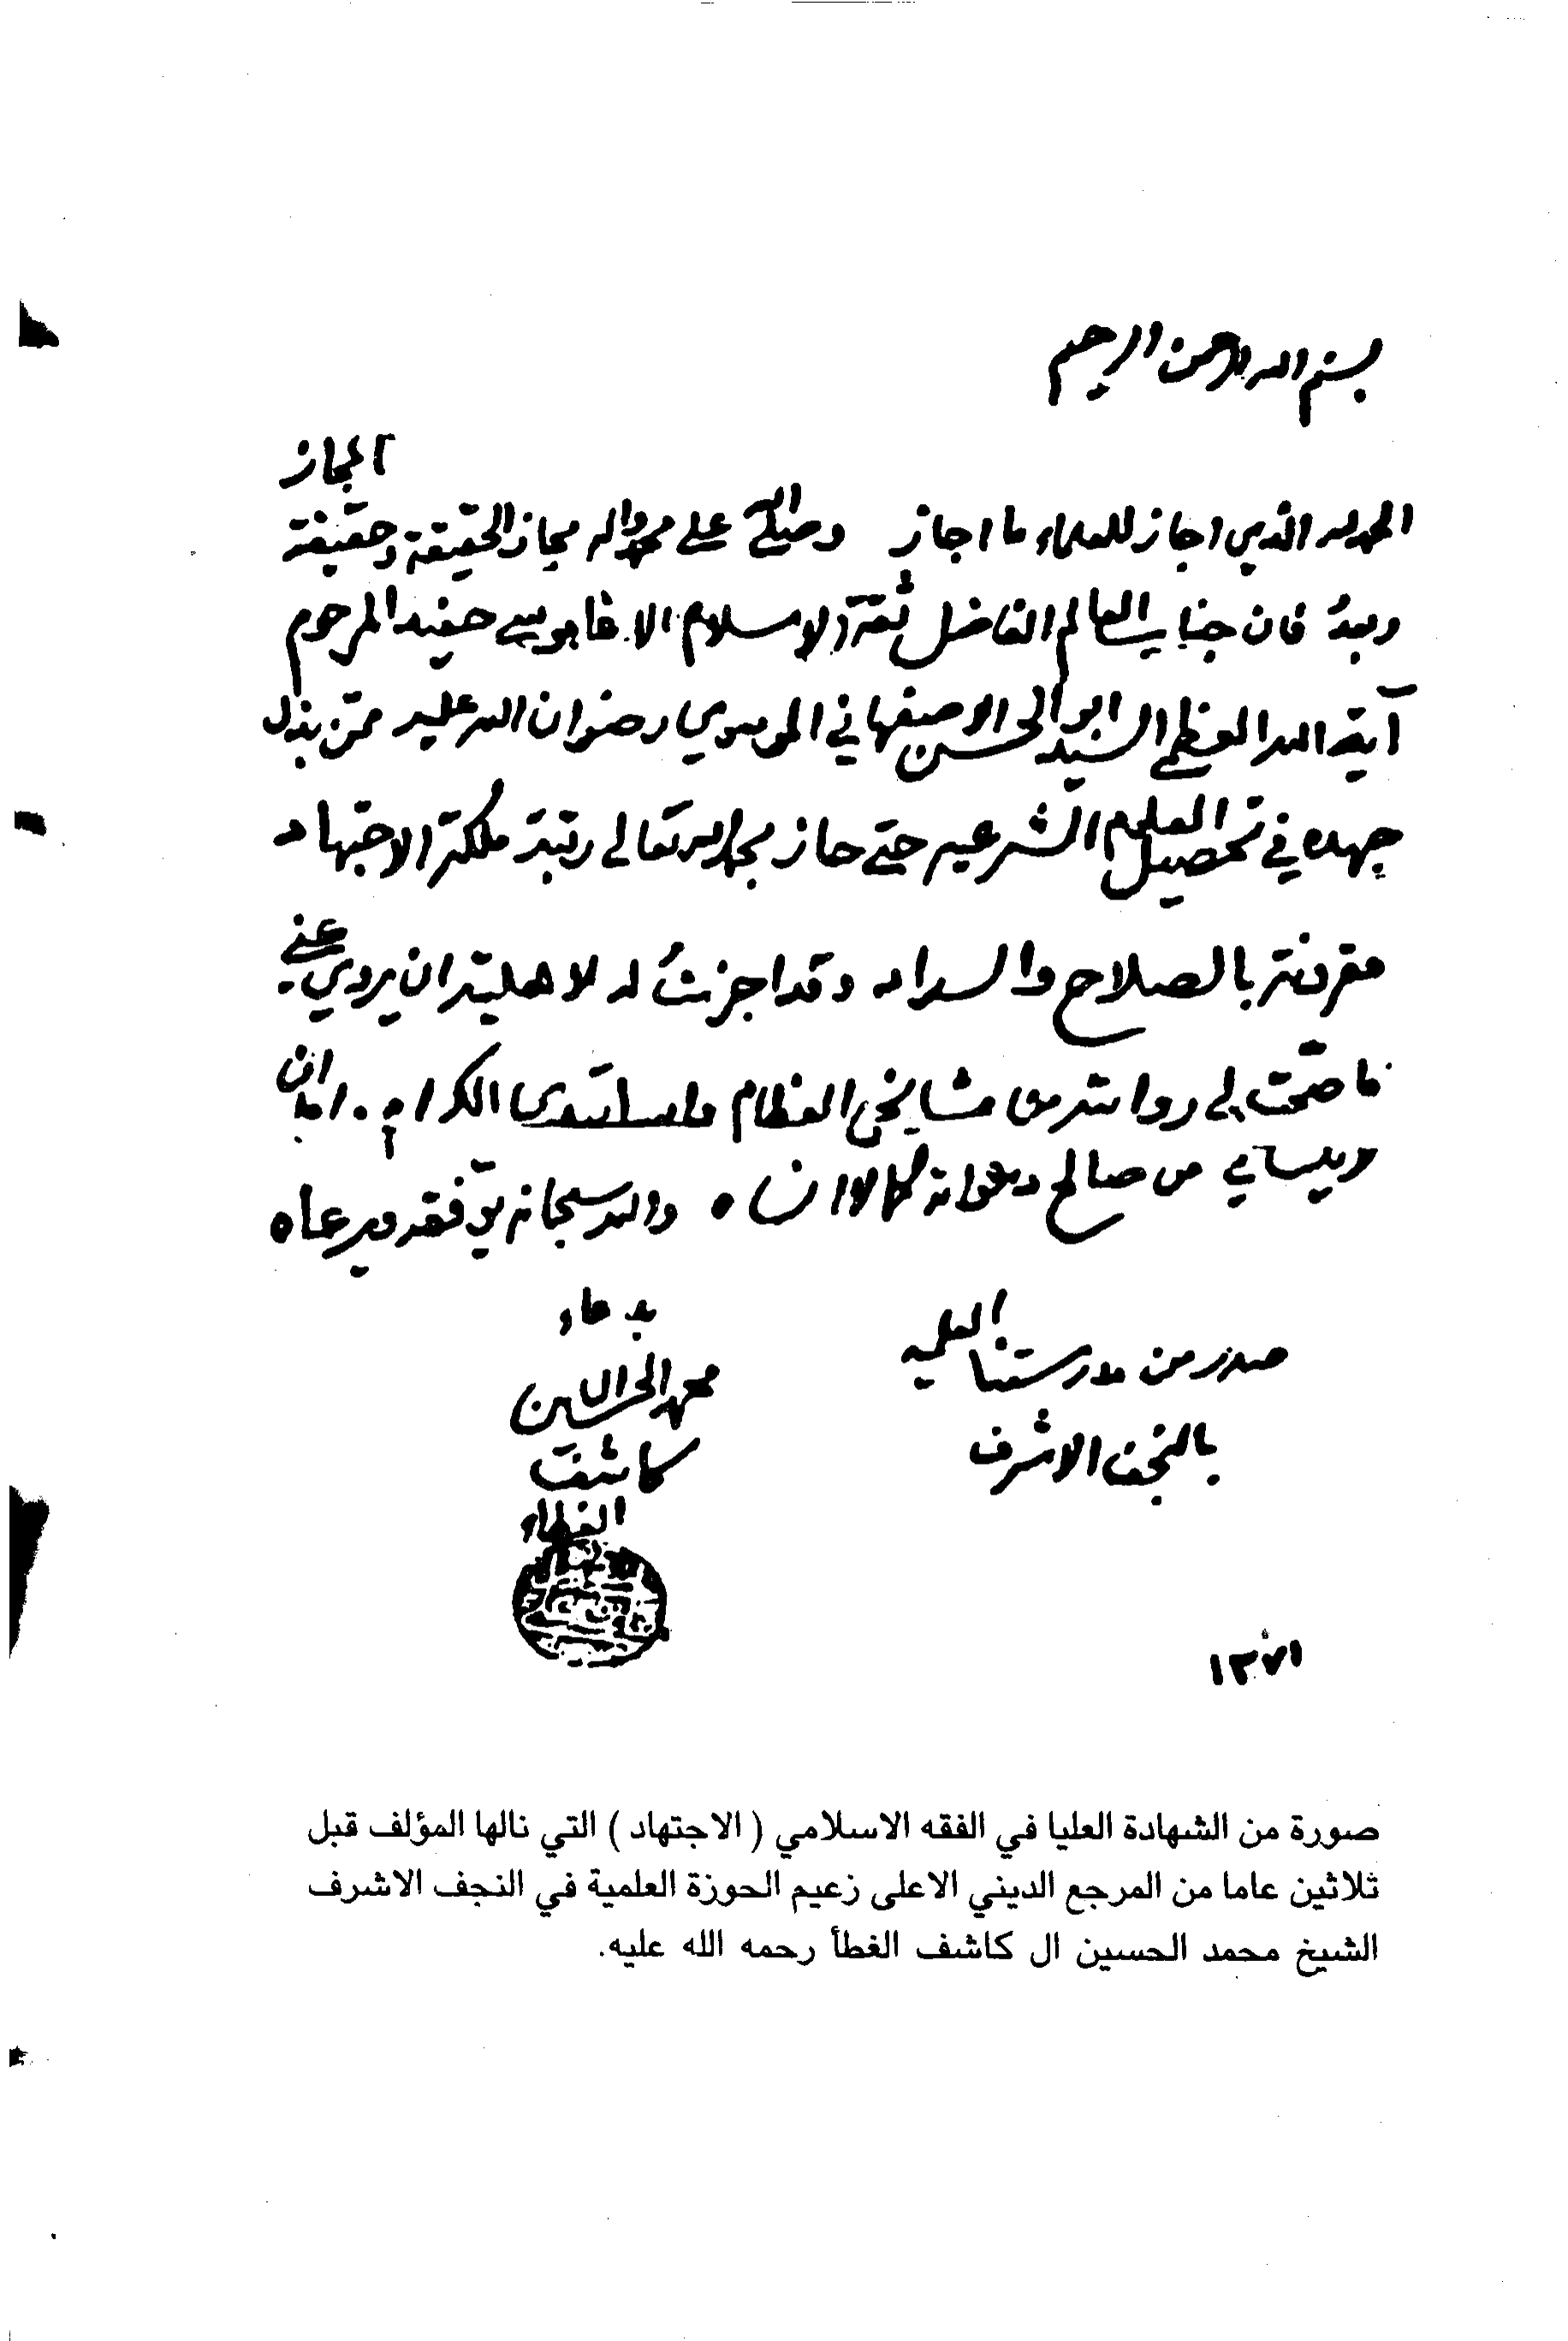 بسم الله الرحمن الرحيم
الحمد لله الذي اجاز للعلماء ما اجاز وصلى الله على محمد واله مجاز الحقيقة وحقيقة المجاز
وبعدُ فان جناب العالم الفاضل ثقة الاسلام الاغا موسى حفيد المرحوم
آية الله العظمى السيد ابو الحسن الاصفهاني الموسوي رضوان الله عليه ممّن بذل
جهده في تحصيل العلوم الشرعيه حتى حاز بحمد لله تعالى رتبة ملكة الاجتهاد
مقرونة بالصلاح والسداد وقد اجزتُ له لاهليته ان يروي عني
ما صحّت لي روايته من مشايخي العظام واساتيدي الكرام
من صالح دعواته كما لا انساه والله سبحانه يوّفقه ويرعاه
صدر من مدرستنا العلميه
بالنجف الاشرف
محمد الحسين
كاشف
الغطاء
صورة من الشهادة العليا في الفقه الاسلامي ( الاجتهاد ) التي نالها المؤلف قبل
ثلاثين عاما من المرجع الديني الاعلى زعيم الحوزة العلمية في النجف الاشرف
الشيخ محمد الحسين ال كاشف الغطأ رحمه الله عليه.